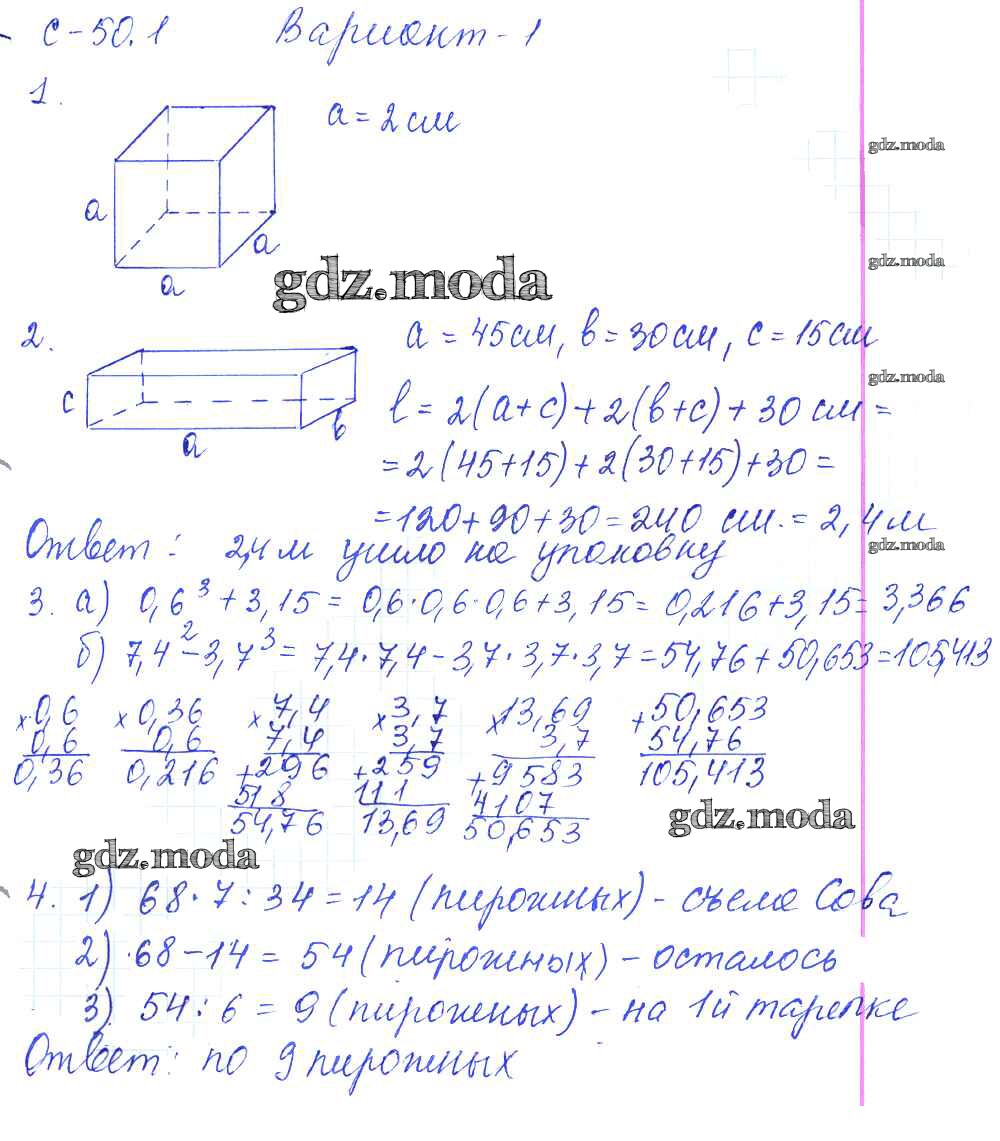 С-50.1 Вариант-1
1.
a = 2 см
a
a
a
gdz.moda
gdz.moda
gdz.moda
2.
a = 45 см, в = 30 см, с = 15 см
gdz.moda
c
a
в
l = 2(a+c) + 2(в+c) + 30 см =
= 2(45+15) + 2(30+15) + 30 =
= 120 + 90 + 30 = 240 см. = 2,4 м
Ответ: 2,4 м ушло на упаковку
gdz.moda
3. а) 0,6³ + 3,15 = 0,6·0,6·0,6 + 3,15 = 0,216 + 3,15 = 3,366
б) 7,4² - 3,7³ = 7,4·7,4 - 3,7·3,7·3,7 = 54,76 + 50,653 = 105,413
× 0,6 × 0,36 × 7,4 × 3,7 × 13,69 + 50,653
0,6 0,6 7,4 3,7 3,7 54,76
0,36 0,216 + 296 + 259 + 9583 105,413
518 111 4107
54,76 13,69 50,653
gdz.moda
gdz.moda
4. 1) 68·7:34 = 14 (пирожных) - съела Сова
2) 68 - 14 = 54 (пирожных) - осталось
3) 54 : 6 = 9 (пирожных) - на 1й тарелке
Ответ: по 9 пирожных